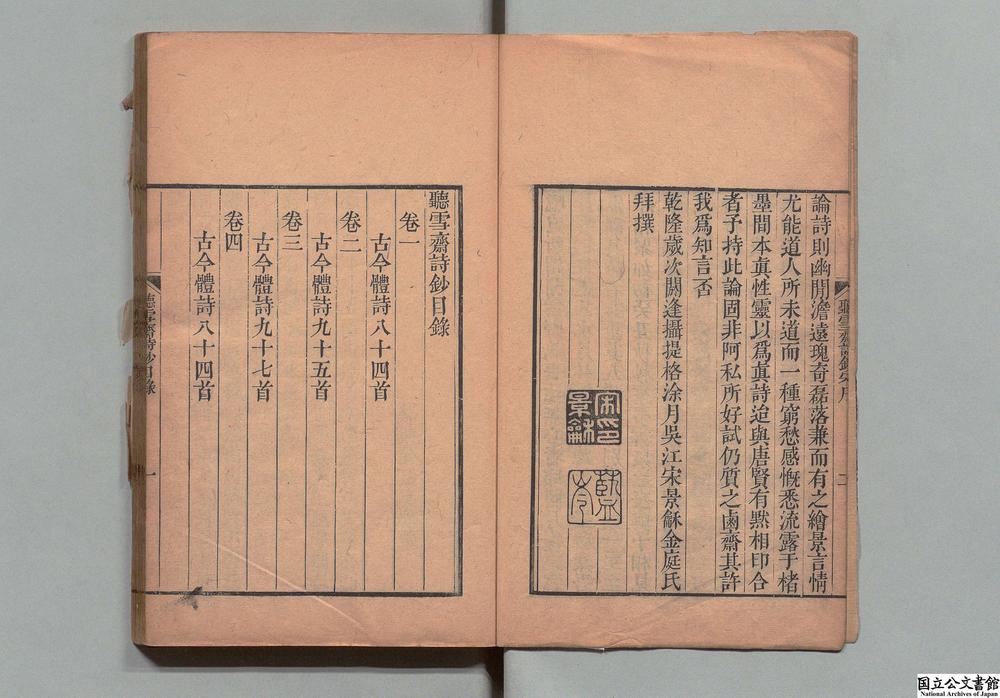 論詩則幽閒澹遠瑰奇磊落兼而有之繪景言情
尤能道人所未道而一種窮愁感慨悉流露于楮
墨間本眞性靈以爲眞詩迨與唐賢有默相印合
者予持此論固非阿私所好試仍質之鹵齋其許
我爲知言否
乾隆歲次閼逢攝提格涂月吳江宋景龢金庭氏
拜撰
宋印景龢
聽雪齋詩鈔目錄
卷一
古今體詩八十四首
卷二
古今體詩九十五首
卷三
古今體詩九十七首
卷四
古今體詩八十四首
聽雪齋詩鈔目錄
一
国立公文書館
National Archives of Japan